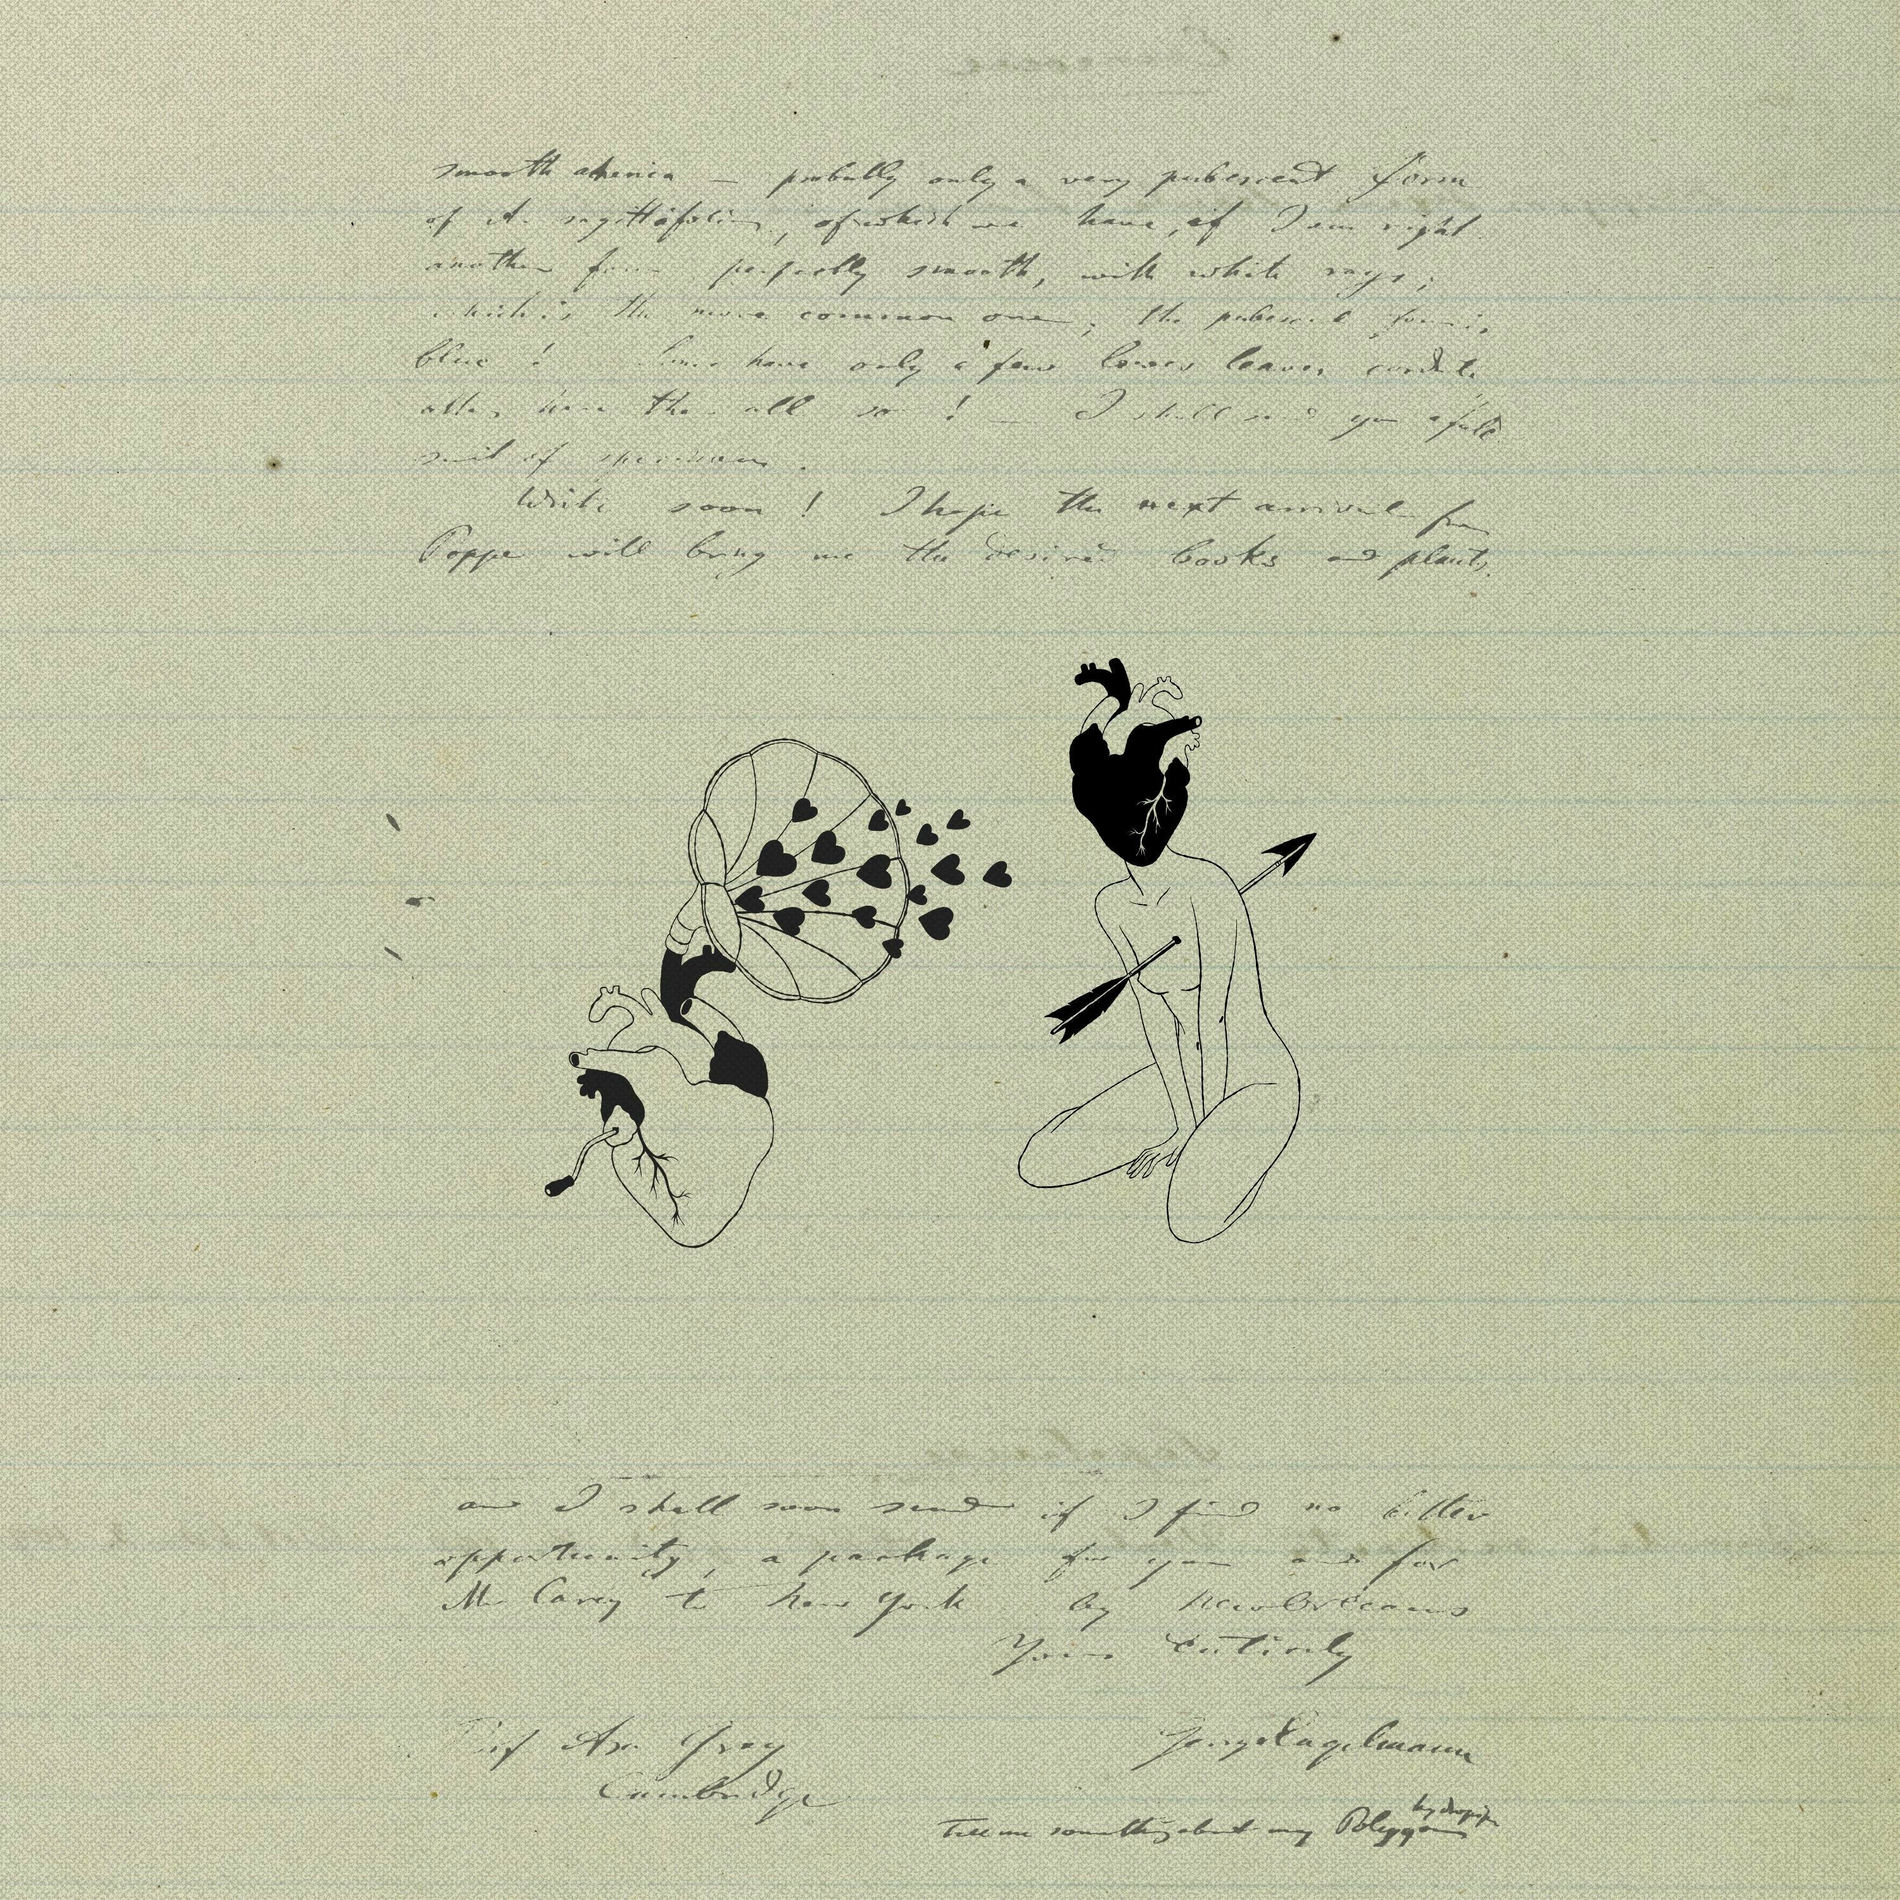 smooth achenia — probably only a very pubescent form
of A. sagittifolius, of which we have, if I am right
another form perfectly smooth, with white rays;
which is the more common one; the pubescent form is
blue! Some have only a few lower leaves cordate
others have them all so! — I shall send you a full
suit of specimens.
Write soon! I hope the next arrival from
Poppe will bring me the desired books and plants,
and I shall soon send if I find no better
opportunity, a package for you and for
Mr Carey to New York by New Orleans
Yours entirely
Prof Asa Gray
George Engelmann
Cambridge
Tell me something about my